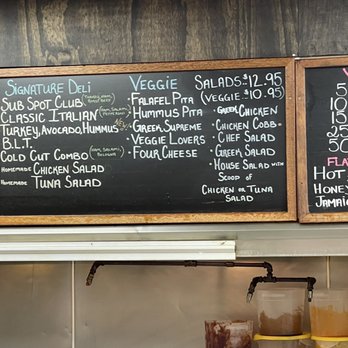 Signature Deli
Sub Spot Club (Turkey, Ham, Roast Beef)
Classic Italian (Ham, Salami, Pepperoni)
Turkey, Avocado, Hummus
B.L.T.
Cold Cut Combo (Ham, Salami, Bologna)
Homemade Chicken Salad
Homemade Tuna Salad
Veggie
• Falafel Pita
• Hummus Pita
• Greek Supreme
• Veggie Lovers
• Four Cheese
Salads $12.95
(Veggie $10.95)
• Greek Chicken
• Chicken Cobb
• Chef Salad
• Greek Salad
• House Salad with
Scoop of
Chicken or Tuna
Salad
Hot
Honey
Jamaic